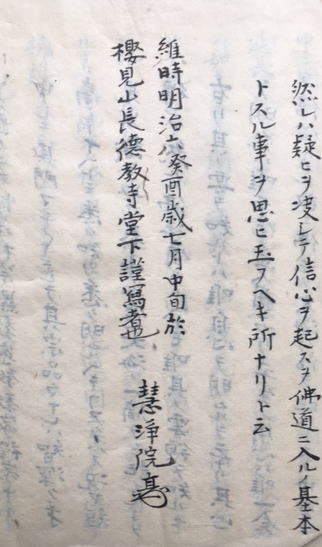 然レハ疑ヒヲ決シテ信心ヲ起スヲ佛道ニ入ルノ基本
トスル事ヲ思ヒ玉フヘキ所ナリト云
維時明治六癸酉歳七月中旬於
櫻見山長德教寺堂下謹寫者也
慧淨院